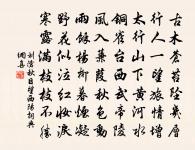 古木蒼苔墜幾層
行人一望旅情增
太行山下黃河水
銅雀台西武帝陵
風入蒹葭秋色動
雨餘楊柳暮煙凝
野花似泣紅妝淚
寒露滿枝枝不勝
劉滄秋日望西陽詞典
網喜